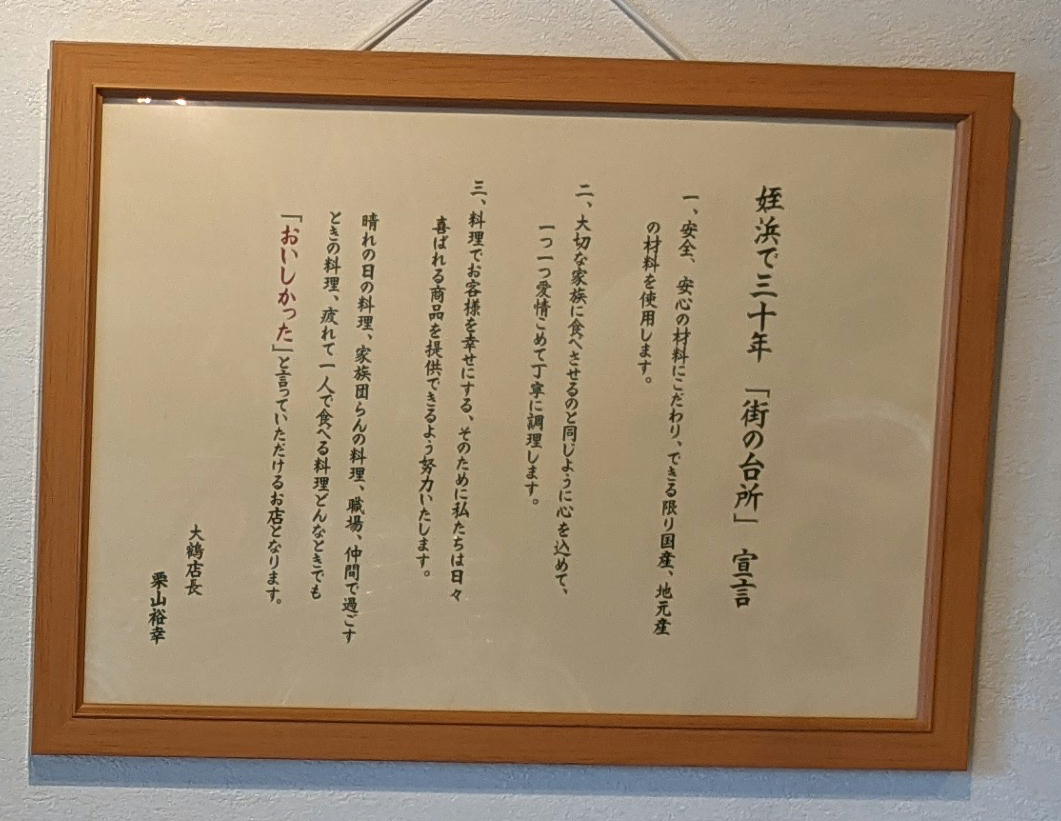 姪浜で三十年 「街の台所」 宣言
一、安全、安心の材料にこだわり、できる限り国産、地元産
の材料を使用します。
二、大切な家族に食べさせるのと同じように心を込めて、
一つ一つ愛情こめて丁寧に調理します。
三、料理でお客様を幸せにする、そのために私たちは日々
喜ばれる商品を提供できるよう努力いたします。
晴れの日の料理、家族団らんの料理、職場、仲間で過ごす
ときの料理、疲れて一人で食べる料理どんなときでも
「おいしかった」と言っていただけるお店となります。
大鶴店長
栗山裕幸